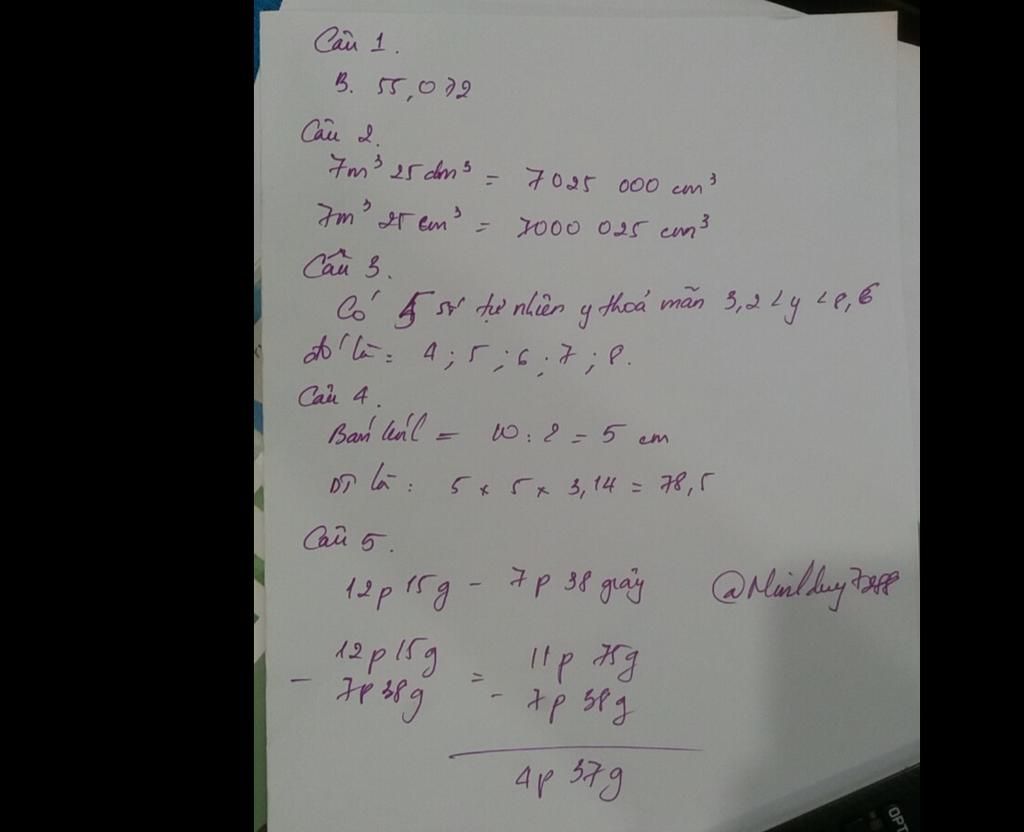 Câu 1.
B. 55,072
Câu 2.
7m³ 25 dm³ = 7025 000 cm³
7m³ 25 cm³ = 7000 025 cm³
Câu 3.
Có 5 số tự nhiên y thoả mãn 3,2 < y < 8,6
đó là: 4 ; 5 ; 6 ; 7 ; 8.
Câu 4.
Bán kính = 10 : 2 = 5 cm
DT là : 5 x 5 x 3,14 = 78,5
Câu 5.
12p 15g - 7p 38 giây
@Minhduy7288
12p 15g = 11p 75g
- 7p 38g - 7p 38g
4p 37g
OPT